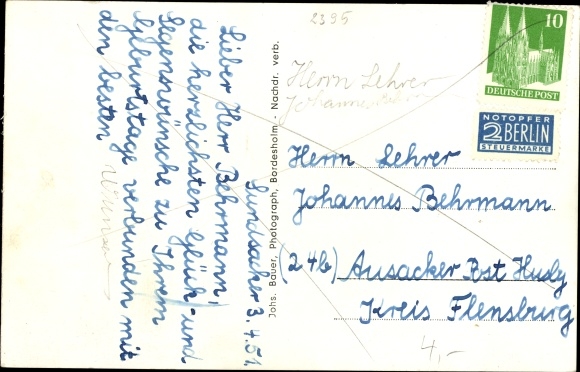 2395
Lundsacker 3.4.51.
Lieber Herr Behrmann,
die herzlichsten Glück- und
Segenswünsche zu Ihrem
Geburtstage verbunden mit
den besten
Johs. Bauer, Photograph, Bordesholm - Nachdr. verb.
10
DEUTSCHE POST
NOTOPFER
2 BERLIN
STEUERMARKE
Herrn Lehrer
Johannes
Herrn Lehrer
Johannes Behrmann
24b) Ausacker Post Husby
Kreis Flensburg
4,-